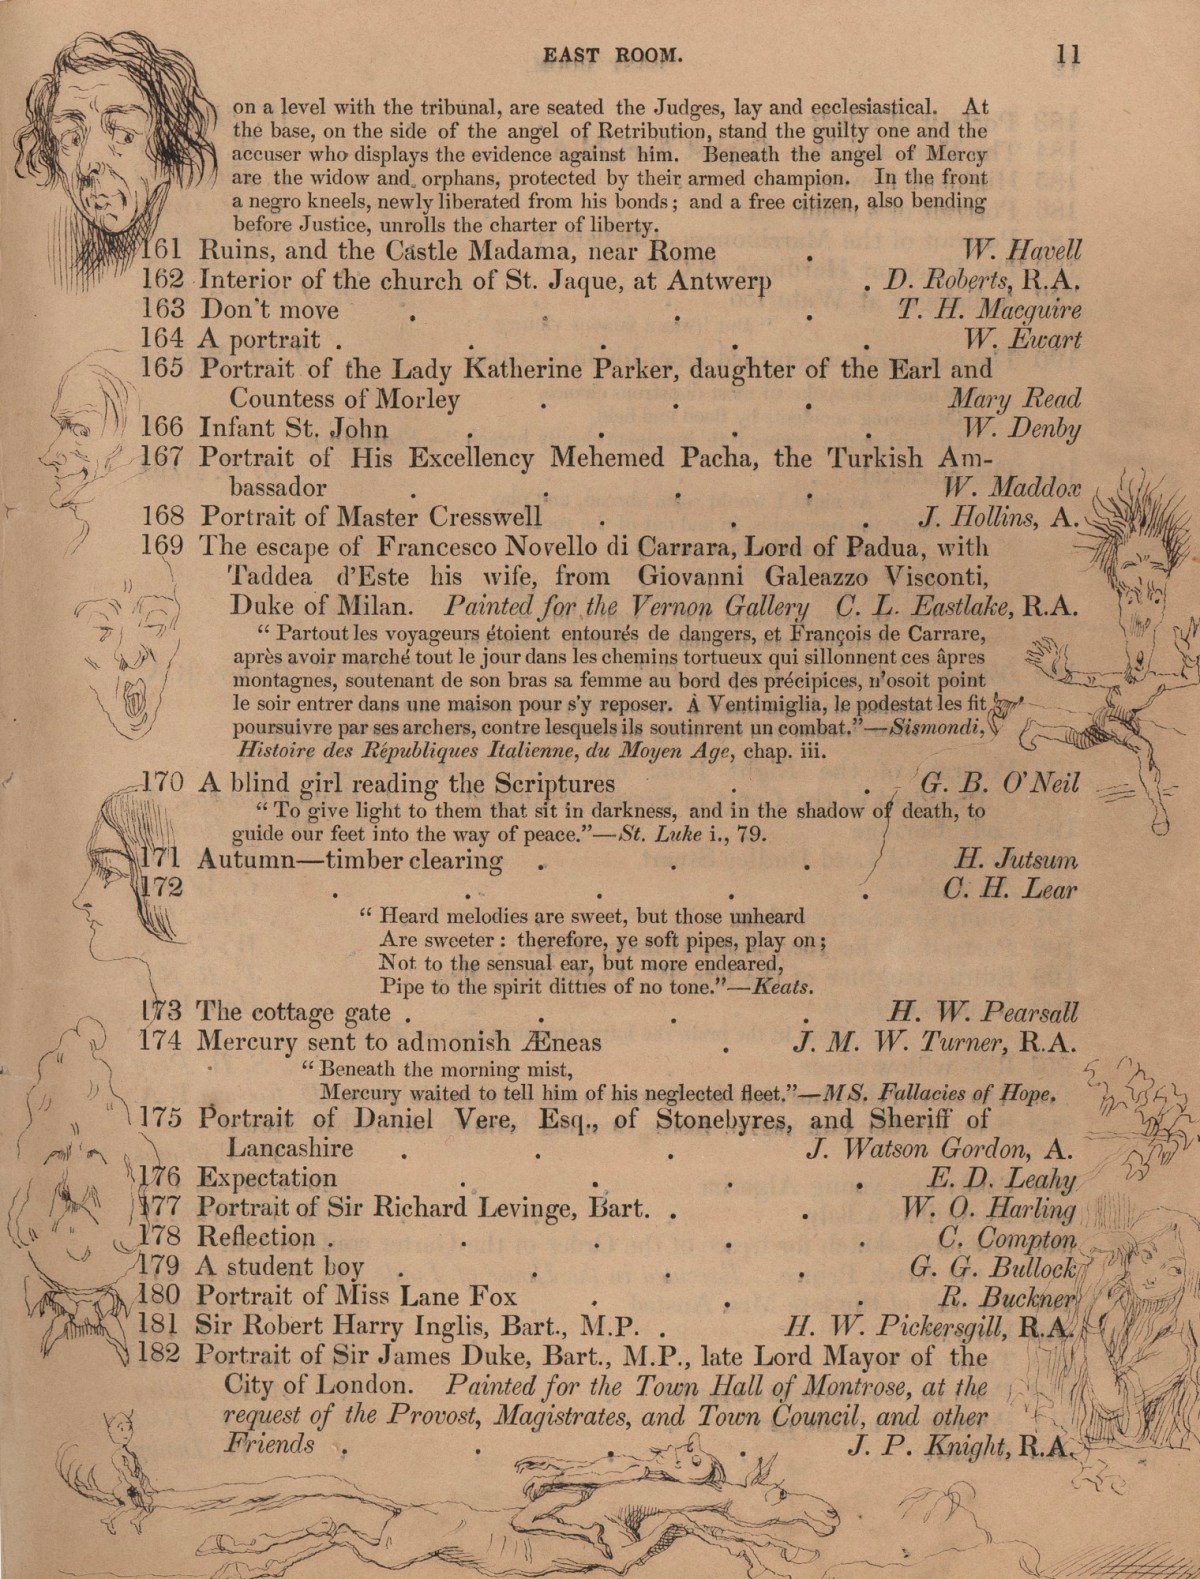 EAST ROOM. 11
on a level with the tribunal, are seated the Judges, lay and ecclesiastical. At
the base, on the side of the angel of Retribution, stand the guilty one and the
accuser who displays the evidence against him. Beneath the angel of Mercy
are the widow and orphans, protected by their armed champion. In the front
a negro kneels, newly liberated from his bonds; and a free citizen, also bending
before Justice, unrolls the charter of liberty.
161 Ruins, and the Castle Madama, near Rome . W. Havell
162 Interior of the church of St. Jaque, at Antwerp . D. Roberts, R.A.
163 Don't move . . . . T. H. Macguire
164 A portrait . . . . . W. Ewart
165 Portrait of the Lady Katherine Parker, daughter of the Earl and
Countess of Morley . . . Mary Read
166 Infant St. John . . . . W. Denby
167 Portrait of His Excellency Mehemed Pacha, the Turkish Am-
bassador . . . . W. Maddox
168 Portrait of Master Cresswell . . . J. Hollins, A.
169 The escape of Francesco Novello di Carrara, Lord of Padua, with
Taddea d'Este his wife, from Giovanni Galeazzo Visconti,
Duke of Milan. Painted for the Vernon Gallery C. L. Eastlake, R.A.
“ Partout les voyageurs étoient entourés de dangers, et François de Carrare,
après avoir marché tout le jour dans les chemins tortueux qui sillonnent ces âpres
montagnes, soutenant de son bras sa femme au bord des précipices, n'osoit point
le soir entrer dans une maison pour s'y reposer. À Ventimiglia, le podestat les fit
poursuivre par ses archers, contre lesquels ils soutinrent un combat.”—Sismondi,
Histoire des Républiques Italienne, du Moyen Age, chap. iii.
170 A blind girl reading the Scriptures . . G. B. O'Neil
“ To give light to them that sit in darkness, and in the shadow of death, to
guide our feet into the way of peace.”—St. Luke i., 79.
171 Autumn—timber clearing . . . H. Jutsum
172 . . . . . C. H. Lear
“ Heard melodies are sweet, but those unheard
Are sweeter : therefore, ye soft pipes, play on ;
Not to the sensual ear, but more endeared,
Pipe to the spirit ditties of no tone.”—Keats.
173 The cottage gate . . . . H. W. Pearsall
174 Mercury sent to admonish Æneas . J. M. W. Turner, R.A.
“ Beneath the morning mist,
Mercury waited to tell him of his neglected fleet.”—MS. Fallacies of Hope.
175 Portrait of Daniel Vere, Esq., of Stonebyres, and Sheriff of
Lancashire . . . J. Watson Gordon, A.
176 Expectation . . . . E. D. Leahy
177 Portrait of Sir Richard Levinge, Bart. . . W. O. Harling
178 Reflection . . . . . C. Compton
179 A student boy . . . . G. G. Bullock
180 Portrait of Miss Lane Fox . . . R. Buckner
181 Sir Robert Harry Inglis, Bart., M.P. . H. W. Pickersgill, R.A.
182 Portrait of Sir James Duke, Bart., M.P., late Lord Mayor of the
City of London. Painted for the Town Hall of Montrose, at the
request of the Provost, Magistrates, and Town Council, and other
Friends . . . . J. P. Knight, R.A.